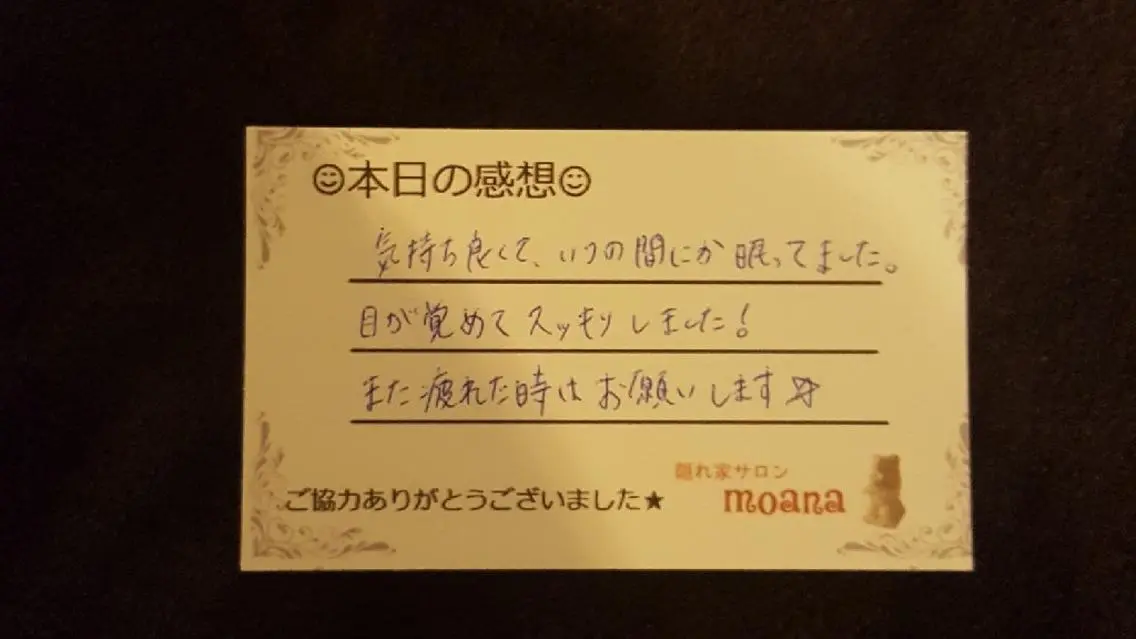 ☺本日の感想☺
気持ち良くて、いつの間にか眠ってました。
目が覚めてスッキリしました!
また疲れた時はお願いします☆
隠れ家サロン
moana
ご協力ありがとうございました★